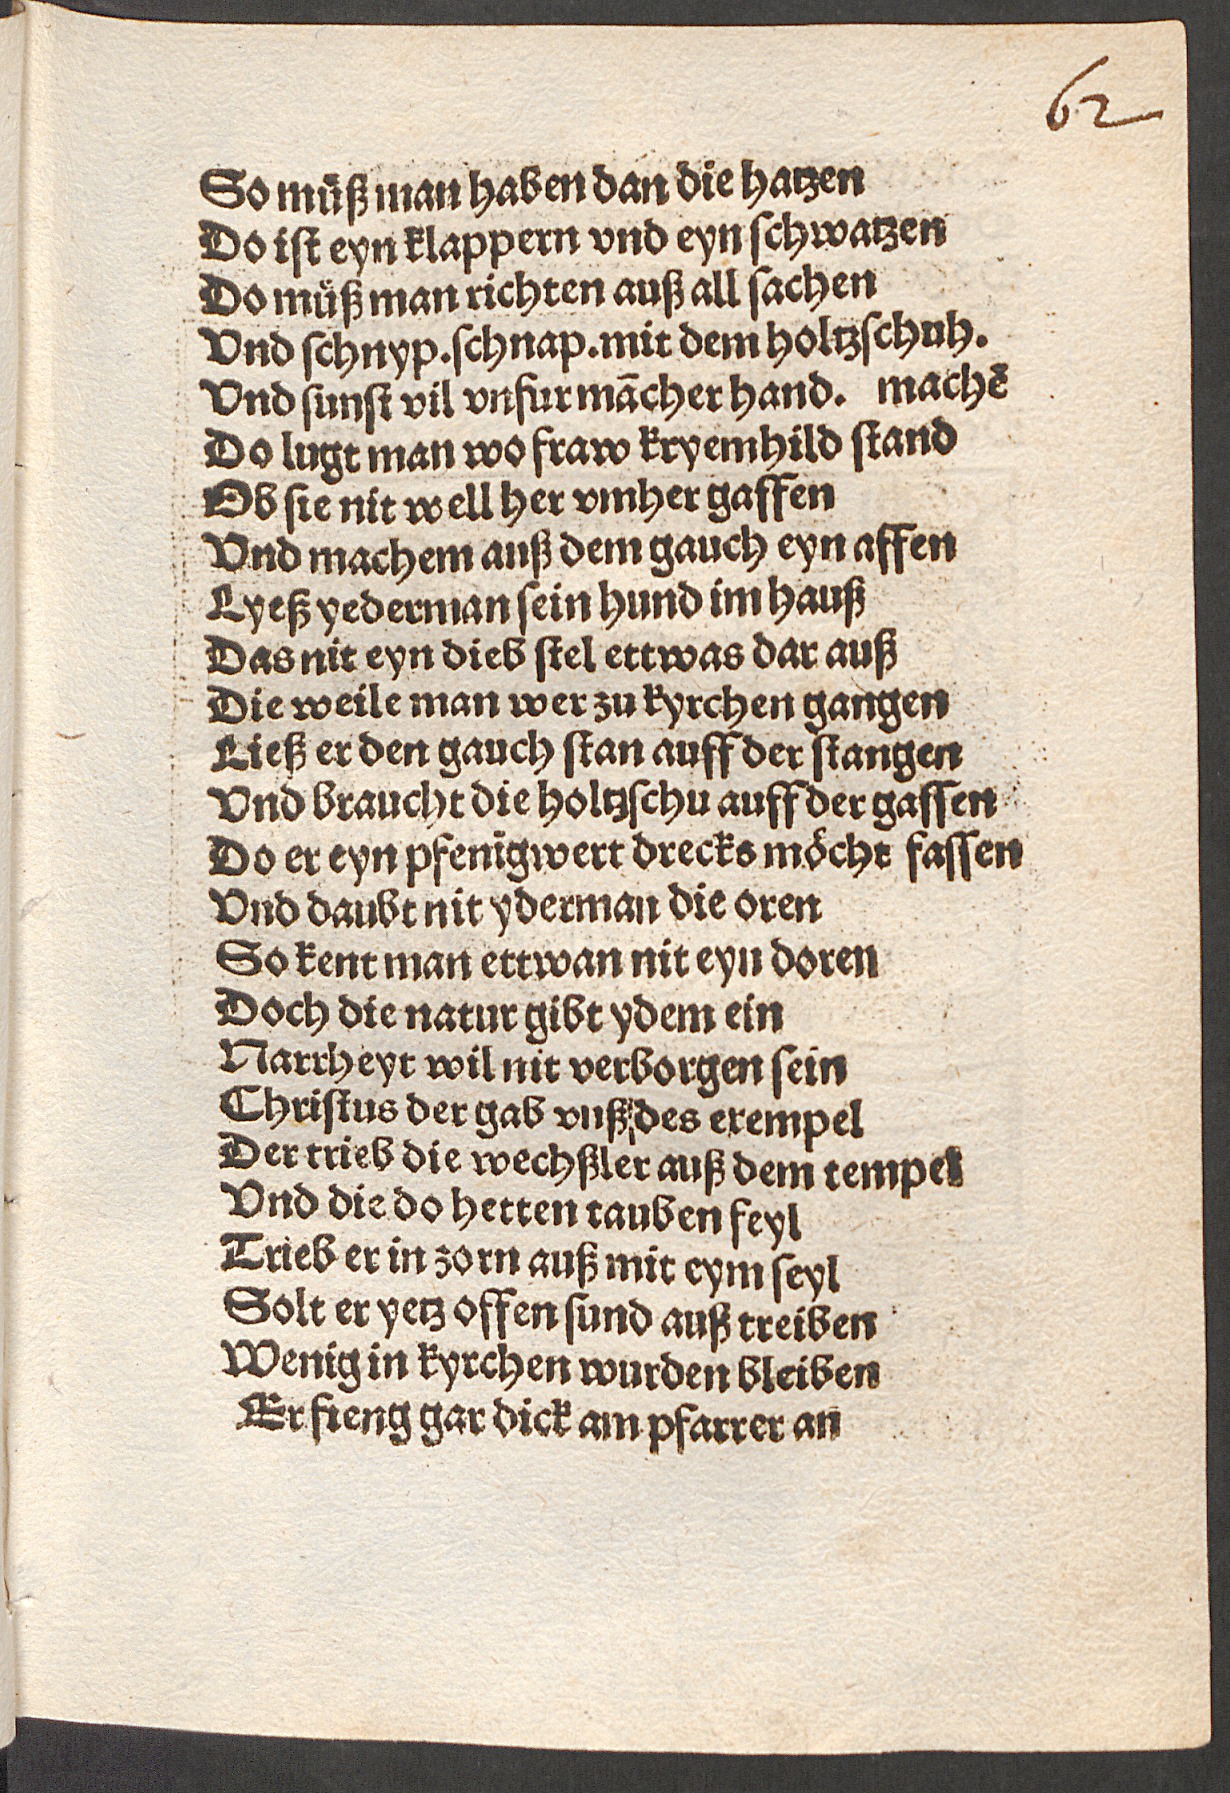 62
So müß man haben dan die hatzen
Do ist eyn klappern vnd eyn schwatzen
Do müß man richten auß all sachen
Vnd schnyp.schnap.mit dem holtzschuh.
Vnd sunst vil vnfur mācher hand. machē
Do lugt man wo fraw kryemhild stand
Ob sie nit well her vmher gaffen
Vnd machem auß dem gauch eyn affen
Lyeß yederman sein hund im hauß
Das nit eyn dieb stel ettwas dar auß
Die weile man wer zu kyrchen gangen
Ließ er den gauch stan auff der stangen
Vnd braucht die holtzschu auff der gassen
Do er eyn pfenīgwert drecks möcht fassen
Vnd daubt nit yderman die oren
So kent man ettwan nit eyn doren
Doch die natur gibt ydem ein
Narrheyt wil nit verborgen sein
Christus der gab vnß des exempel
Der trieb die wechßler auß dem tempel
Vnd die do hetten tauben feyl
Trieb er in zorn auß mit eym seyl
Solt er yetz offen sund auß treiben
Wenig in kyrchen wurden bleiben
Er fieng gar dick am pfarrer an